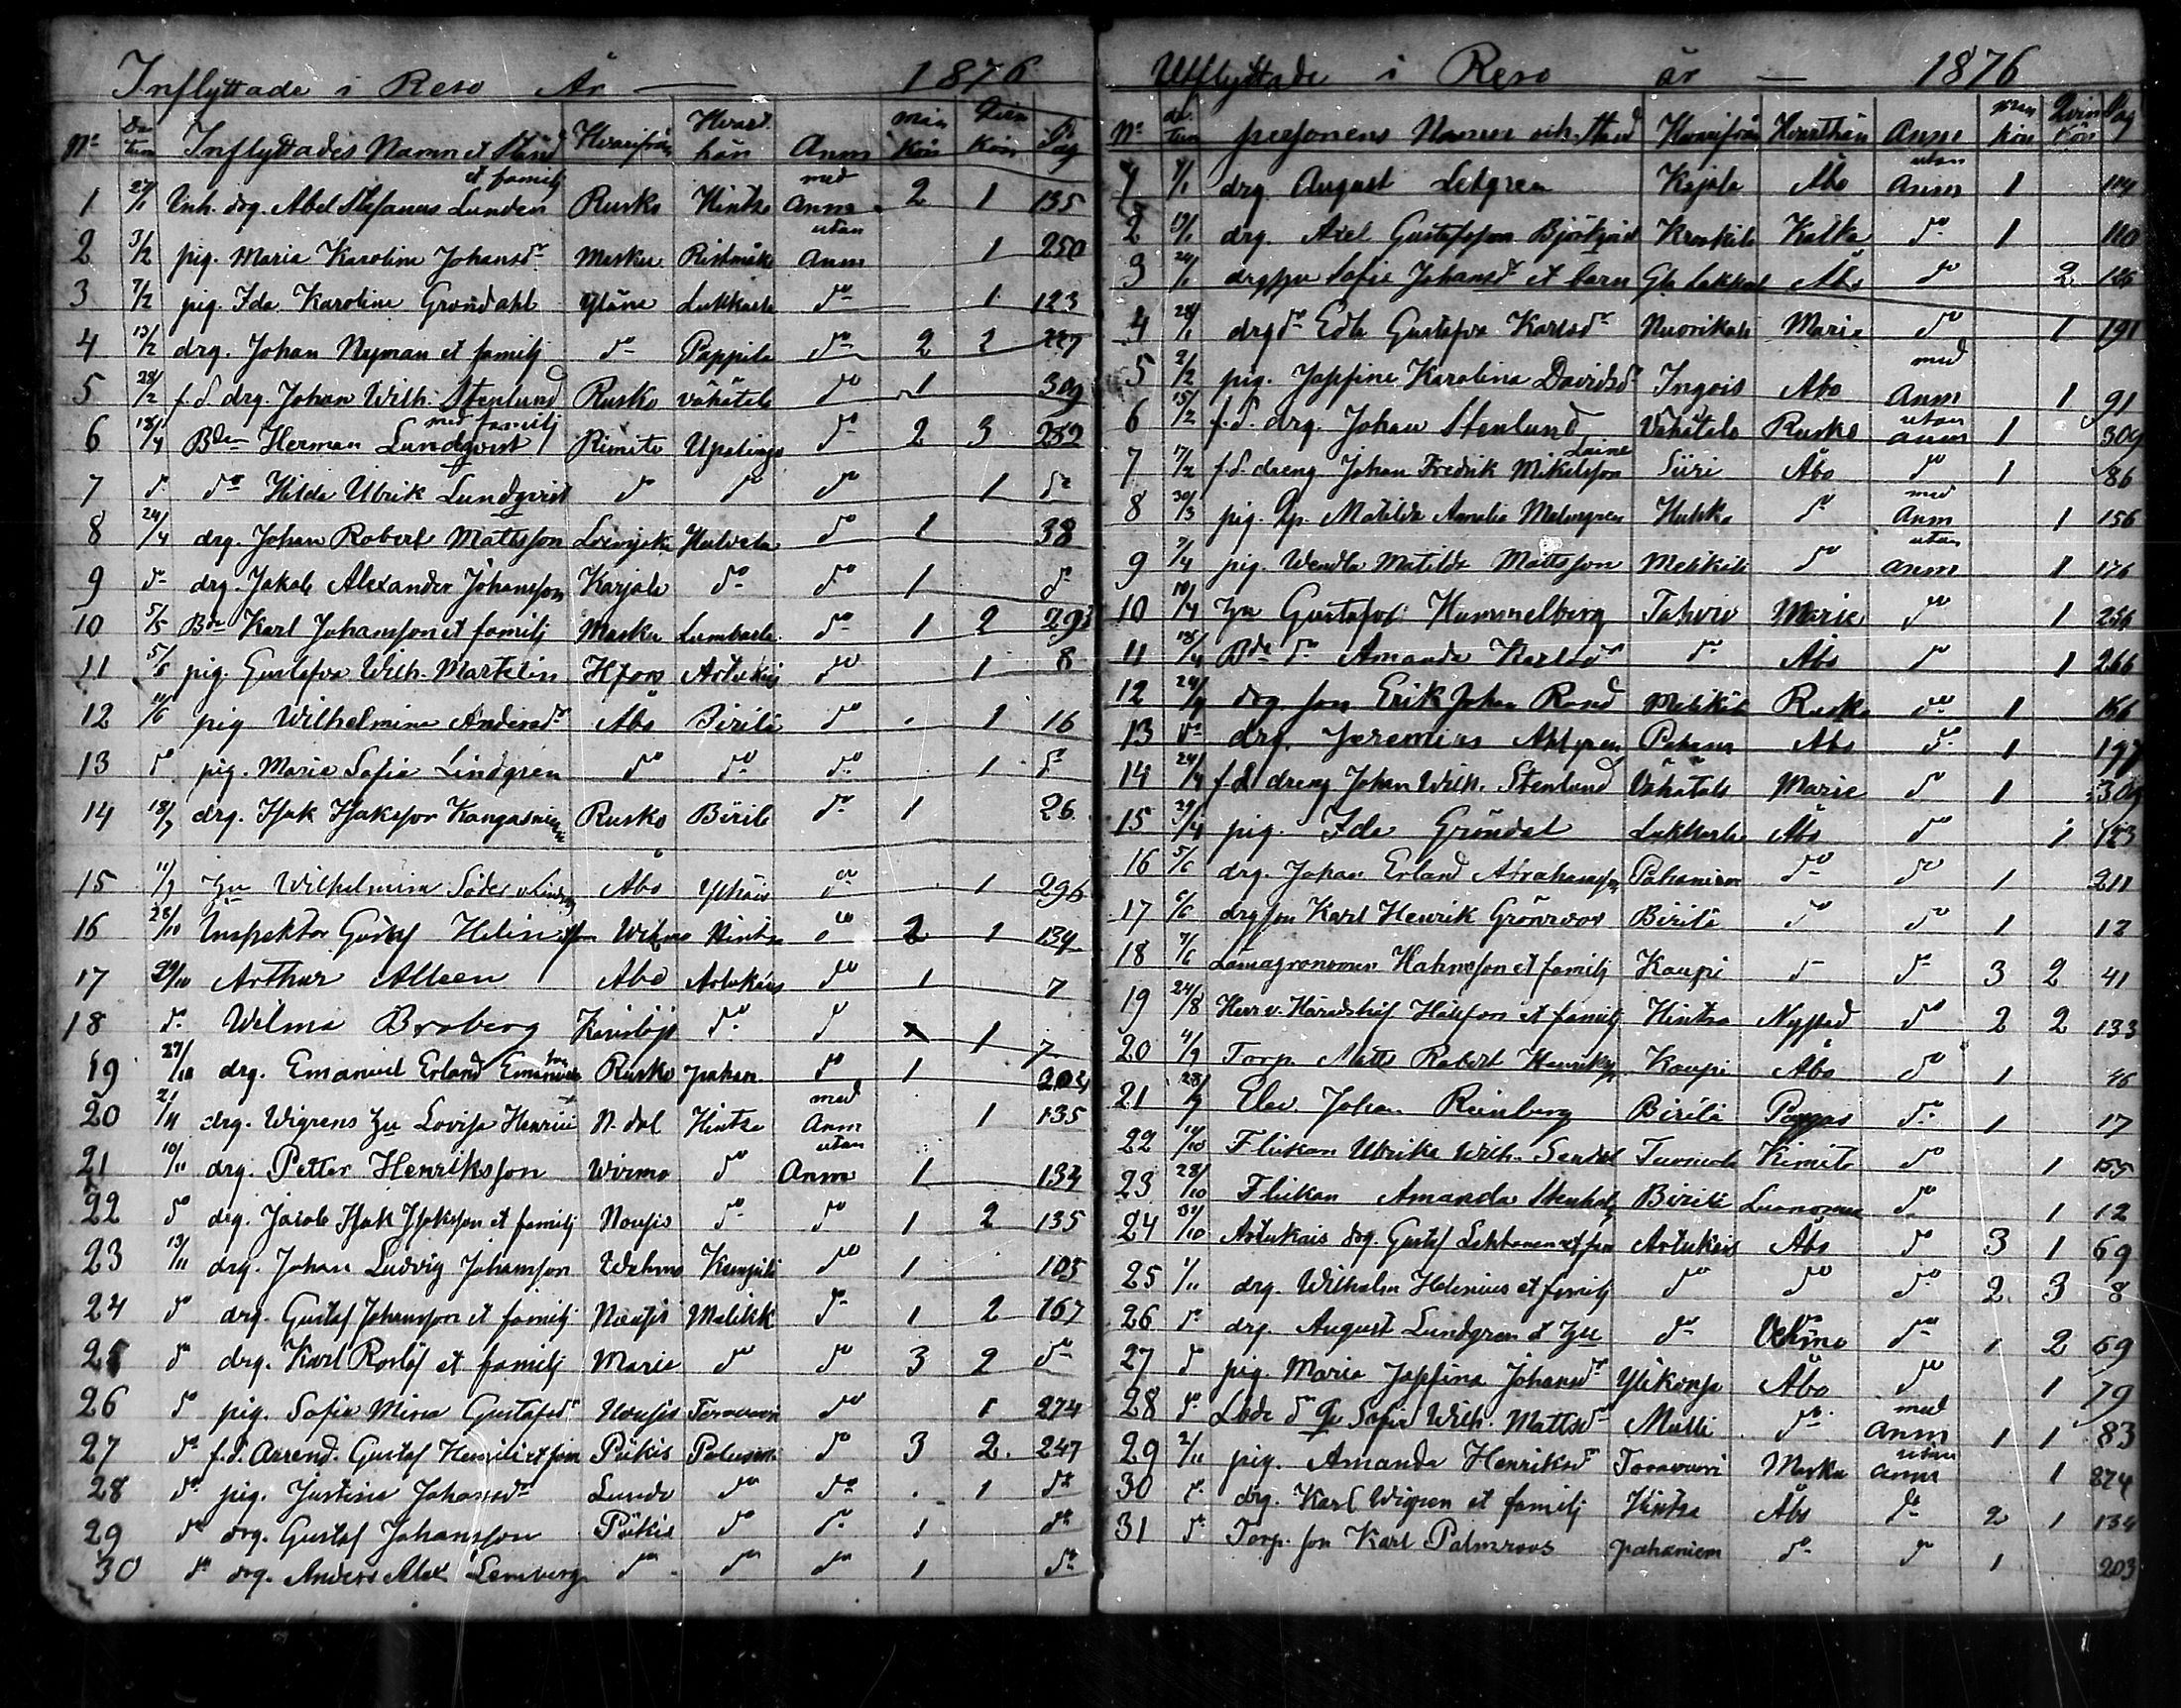 Inflyttade i Reso År — 1876
No Datum Inflyttades Namn et Stånd Hvarifrån Hvart hän Anm män Kön Qvin Kön Pag
1 27/1 Enh. drg. Abel Stefanus Lunden et familj Rusko Hintsa med Anm 2 1 135
2 3/2 pig. Maria Karolina Johansdr Masku Ristimäki utan Anm 1 250
3 7/2 pig. Ida Karolina Gröndahl Yläne Lukkarla do 1 123
4 13/2 drg. Johan Nyman et familj do Pappila do 2 2 227
5 28/2 f.d. drg. Johan Wilh. Stenlund Rusko Vähätalo do 1 309
6 18/4 Bdn Herman Lundqvist med familj Rimito Upalinga do 2 3 252
7 do do Hilda Ulrik Lundqvist do do do 1 do
8 24/4 drg. Johan Robert Mattsson do 1 38
9 do drg. Jakob Alexander Johansson Karjala do do 1 do
10 5/5 Bdn Karl Johansson et familj Masku Lumbarla do 1 2 293
11 5/5 pig. Gustafva Wilh. Martelin Hfors Artukais do 1 8
12 11/6 pig Wilhelmina Andersdr Åbo Birilä do 1 16
13 do pig. Maria Sofia Lindgren do do do 1 do
14 18/7 drg. Isak Isaksson Kangasniemi Rusko Birilä do 1 26
15 11/9 Wilhelmina Söder Åbo do 1 296
16 28/10 Inspektor Gustaf Helin Hintsa do 2 1 134
17 29/10 Arthur Alleen Åbo Artukais do 1 7
18 do Wilma Broberg do do 1 7
19 27/10 drg. Emanuel Erland Emanuels son Rusko pahan. do 1 204
20 2/11 drg. Wigrens Lovisa N. dal Hintsa med Anm 1 135
21 10/11 drg. Petter Henriksson Wirmo do utan Anm 1 134
22 do drg. Jacob Isak Isaksson et familj Nousis do do 1 2 135
23 13/11 drg. Johan Ludvig Johansson Wehmo do 1 103
24 do drg. Gustaf Johansson et familj Nousis do 1 2 167
25 do drg. Karl Roslöf et familj Marie do do 3 2 do
26 do pig. Sofia Mina Gustafsdr Nousis Toravuori do 1 274
27 do f.d. Arrend. Gustaf et fam Pikis do 3 2 247
28 do pig. Justina Johansdr Lundo do do 1 do
29 do drg. Gustaf Johansson Pikis do do 1 do
30 do drg. Anders Alex Lemberg do do do 1 do
Utflyttade i Reso år — 1876
No datum personens Namn och Stånd Hvarifrån Hvarthän Anm män Kön Qvin Kön Pag
1 7/1 drg August Letgren Kajala Åbo utan Anm 1
2 13/1 drg. Axel Gustafsson do 1 110
3 24/1 Sofia Johansd et barn Åbo do 2
4 28/1 drgdr Edla Gustafva Karlsdr Marie do 1 191
5 2/2 pig. Josefina Karolina Davidsdr Ingois Åbo med Anm 1 91
6 15/2 f.d. drg. Johan Stenlund Vähätalo Rusko utan anm 1 309
7 7/2 f.d. dreng Johan Fredrik Mikelsson Laine Siiri Åbo do 1 86
8 30/3 pig. Matilda Amalia Malmgren Huhko do med Anm 1 156
9 7/4 pig. Wendla Matilda Mattsson do utan anm 1 176
10 10/4 Gustafva Hummelberg Tahvio Marie do 1 256
11 18/4 Amanda Karlsdr do Åbo do 1 266
12 24/4 drg. son Erik Johan Rusko do 1 166
13 do drg. Jeremias Ahlgren Åbo do 1 197
14 24/4 f.d. dreng Johan Wilh. Stenlund Vähätalo Marie do 1 309
15 29/4 pig. Ida Gröndal Lukkarla Åbo do 1 123
16 5/6 drg. Johan Erland Abrahamsson Pahaniemi do do 1 211
17 6/6 drgson Karl Henrik Grönroos Birilä do do 1 12
18 7/6 Länsagronomen Hahnsson et familj Kaupi do do 3 2 41
19 24/8 et familj Hintsa Nystad do 2 2 133
20 4/9 Torp. Matts Robert Henriksson Kaupi Åbo do 1 46
21 28/9 Elev. Johan Reinberg Birilä Pargas do 1 17
22 14/10 Flickan Ulrika Wilh. Kimito do 1 155
23 28/10 Flickan Amanda Birilä do 1 12
24 31/10 Artukais drg. Gustaf Lehtonen et fam Artukais Åbo do 3 1 69
25 1/11 drg. Wilhelm Helenius et familj do do do 2 3 8
26 do drg. August Lundgren et do do 1 2 69
27 do pig. Maria Josefina Johansdr Ylikonsa Åbo do 1 79
28 do Sofia Wilh. Mattsdr Mälli do med Anm 1 1 83
29 2/11 pig. Amanda Henriksdr Toravuori Masku utan anm 1 274
30 do drg. Karl Wigren et familj Hintsa Åbo do 2 1 134
31 do Torp. son Karl Palmroos pahaniem do do 1 203